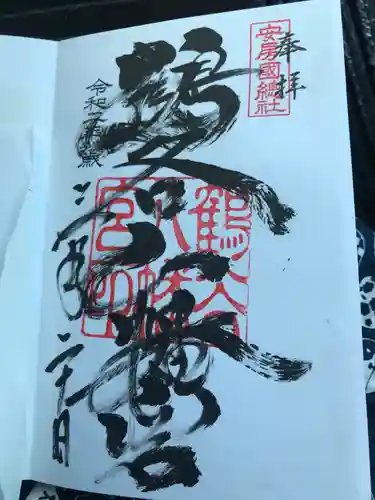 奉拝
安房國總社
鶴谷八幡宮
鶴谷八幡宮
令和二年歳
二月二十日